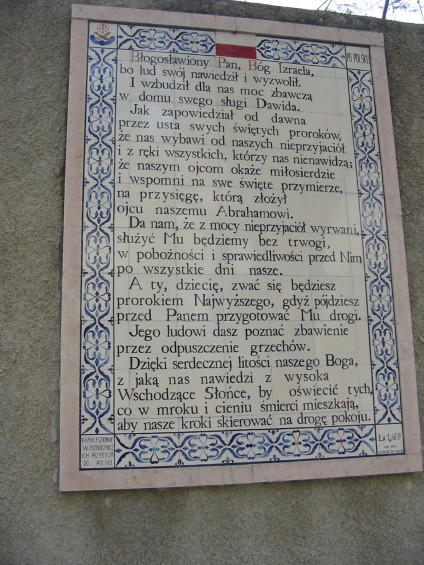 Błogosławiony Pan, Bóg Izraela,
PO POLSKU
bo lud swój nawiedził i wyzwolił.
I wzbudził dla nas moc zbawczą
w domu swego sługi Dawida.
Jak zapowiedział od dawna
przez usta swych świętych proroków,
że nas wybawi od naszych nieprzyjaciół
i z ręki wszystkich, którzy nas nienawidzą;
że naszym ojcom okaże miłosierdzie
i wspomni na swe święte przymierze,
na przysięgę, którą złożył
ojcu naszemu Abrahamowi.
Da nam, że z mocy nieprzyjaciół wyrwani,
służyć Mu będziemy bez trwogi,
w pobożności i sprawiedliwości przed Nim
po wszystkie dni nasze.
A ty, dziecię, zwać się będziesz
prorokiem Najwyższego, gdyż pójdziesz
przed Panem przygotować Mu drogi.
Jego ludowi dasz poznać zbawienie
przez odpuszczenie grzechów.
Dzięki serdecznej litości naszego Boga,
z jaką nas nawiedzi z wysoka
Wschodzące Słońce, by oświecić tych,
co w mroku i cieniu śmierci mieszkają,
aby nasze kroki skierować na drogę pokoju.